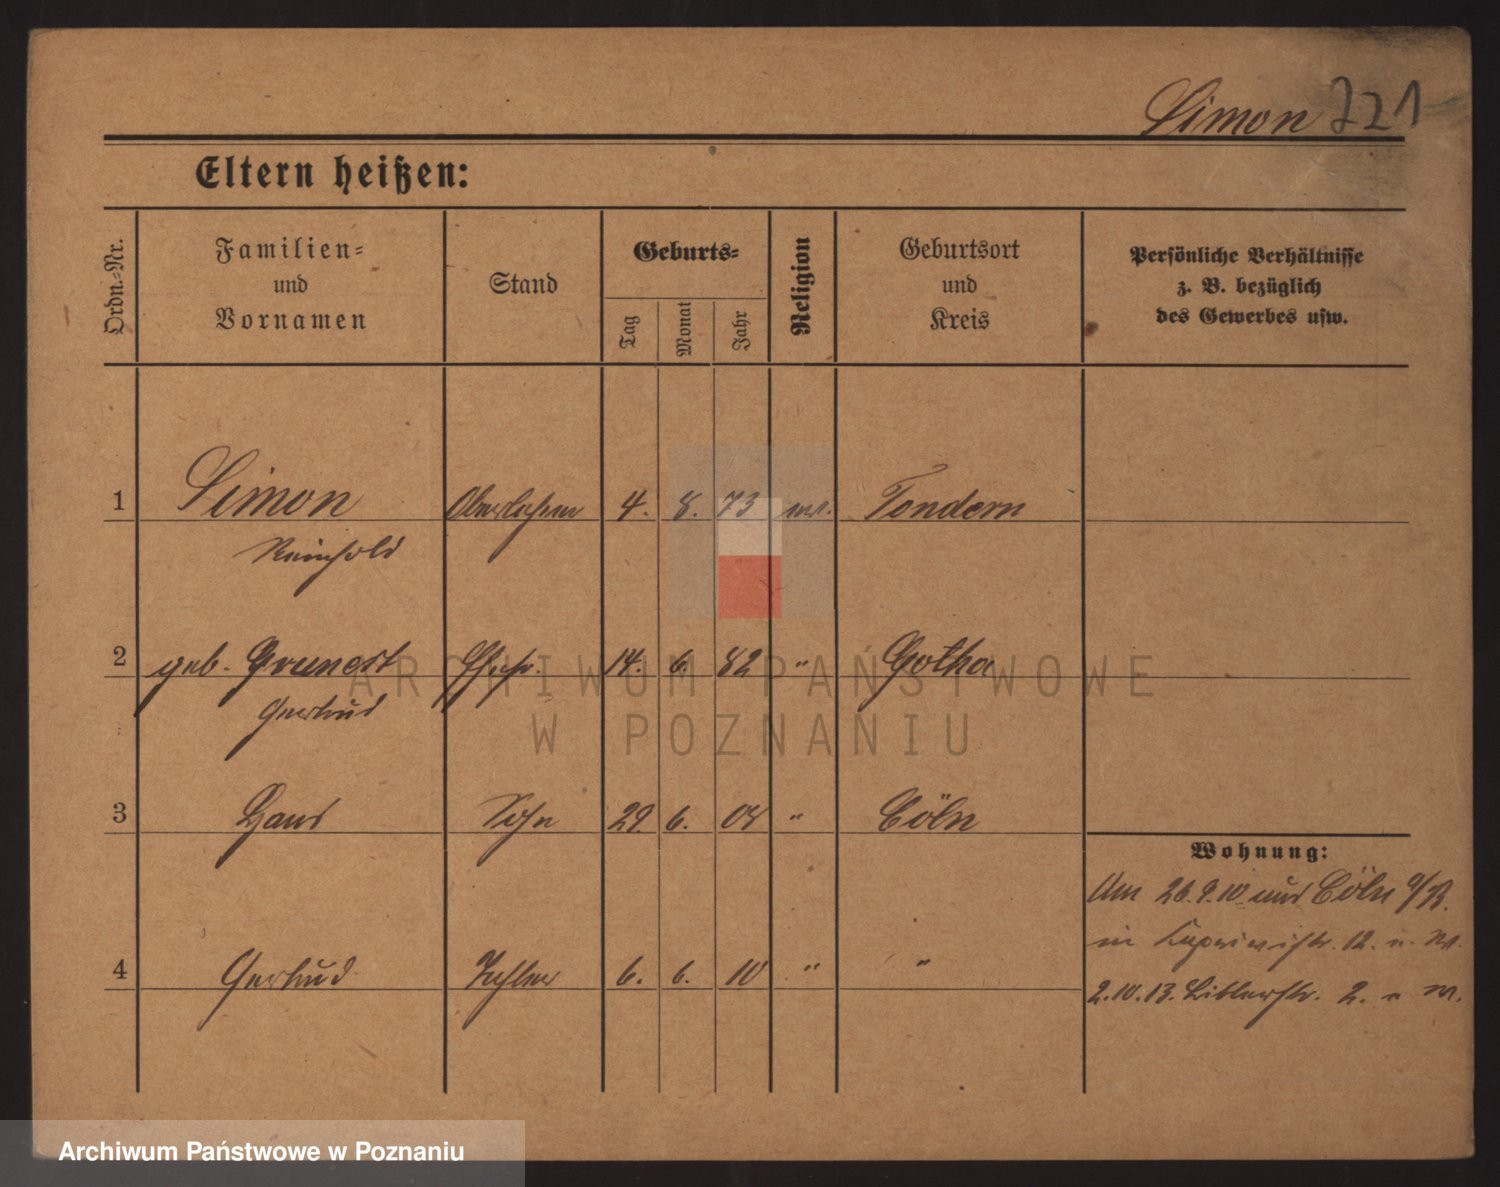 Simon 221
Eltern heißen:
Ordn.-Nr.
Familien-
und
Vornamen
Stand
Geburts-
Tag
Monat
Jahr
Religion
Geburtsort
und
Kreis
Persönliche Verhältnisse
z. B. bezüglich
des Gewerbes usw.
1 Simon 4. 8. 73 ev. Tondern
Reinhold
2 geb. Grunert Ehefr. 14. 6. 82 " Gotha
Gertrud
3 Hans Sohn 29. 6. 08 " Cöln
Wohnung:
Am 26.9.10 aus Cöln a/R.
in 12. n. W.
4 Gertrud Tochter 6. 6. 10 " "
2.10.13. 2. n W.
ARCHIWUM PAŃSTWOWE
W POZNANIU
Archiwum Państwowe w Poznaniu